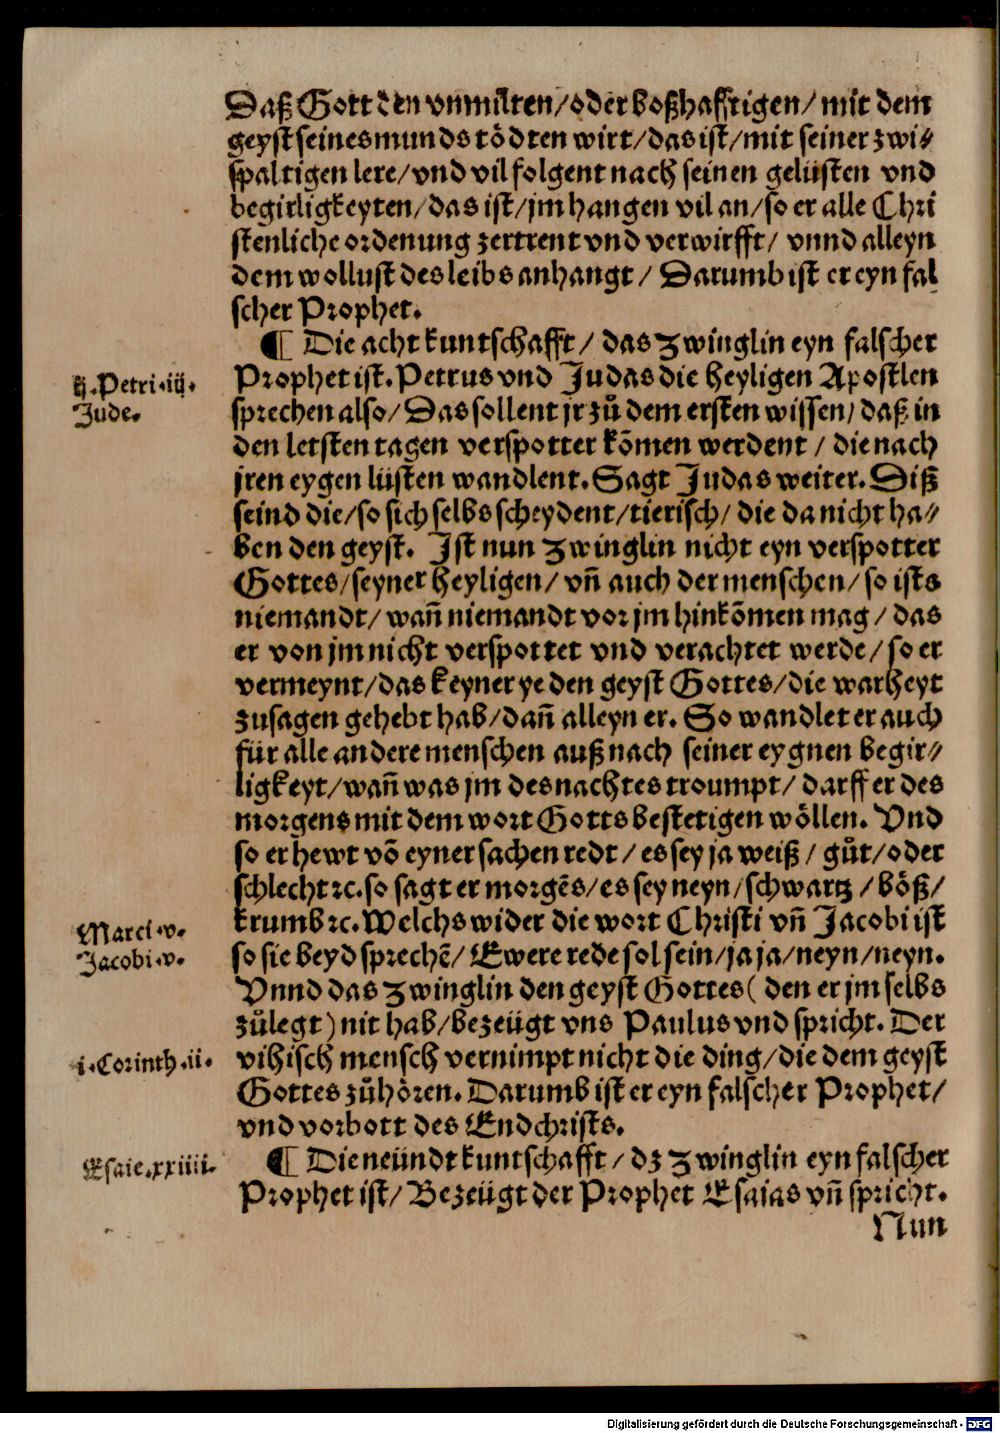 Daß Gott den vnmilten/oder boßhafftigen/ mit dem
geyst seines munds tödten wirt/das ist/mit seiner zwi⸗
spaltigen lere/vnd vil folgent nach seinen gelüsten vnd
begirligkeyten/das ist/jm hangen vil an/so er alle Chri
stenliche ordenung zertrent vnd verwirfft/ vnnd alleyn
dem wollust des leibs anhangt/ Darumb ist er eyn fal
scher Prophet.
¶ Die acht kuntschafft/ das Zwinglin eyn falscher
ij.Petri.iij.
Prophet ist. Petrus vnd Judas die heyligen Apostlen
Jude.
sprechen also/ Das sollent jr zů dem ersten wissen/ daß in
den letsten tagen verspotter kõmen werdent / die nach
jren eygen lüsten wandlent. Sagt Judas weiter. Diß
seind die/so sich selbs scheydent/tierisch/ die da nicht ha⸗
ben den geyst. Ist nun Zwinglin nicht eyn verspotter
Gottes/seyner heyligen/ vñ auch der menschen/ so ists
niemandt/ wañ niemandt vor jm hinkõmen mag / das
er von jm nicht verspottet vnd verachtet werde/ so er
vermeynt/das keyner ye den geyst Gottes/die warheyt
zusagen gehebt hab/dañ alleyn er. So wandlet er auch
für alle andere menschen auß nach seiner eygnen begir⸗
ligkeyt/wañ was jm des nachtes troumpt/ darff er des
morgens mit dem wort Gotts bestetigen wöllen. Vnd
so er hewt võ eyner sachen redt / es sey ja weiß / gůt/oder
schlecht ꝛc. so sagt er morgẽs/es sey neyn/schwartz /böß/
Marci.v.
krumb ꝛc. Welchs wider die wort Christi vñ Jacobi ist
Jacobi.v.
so sie beyd sprechẽ/ Ewere rede sol sein/ja ja/neyn/neyn.
Vnnd das Zwinglin den geyst Gottes( den er jm selbs
zůlegt) nit hab/bezeügt vns Paulus vnd spricht. Der
i.Corinth.ii.
vihisch mensch vernimpt nicht die ding/die dem geyst
Gottes zůhören. Darumb ist er eyn falscher Prophet/
vnd vorbott des Endchrists.
Esaie.xxiiii.
¶ Die neündt kuntschafft/ dz Zwinglin eyn falscher
Prophet ist/ Bezeügt der Prophet Esaias vñ spricht.
Nun
Digitalisierung gefördert durch die Deutsche Forschungsgemeinschaft - DFG